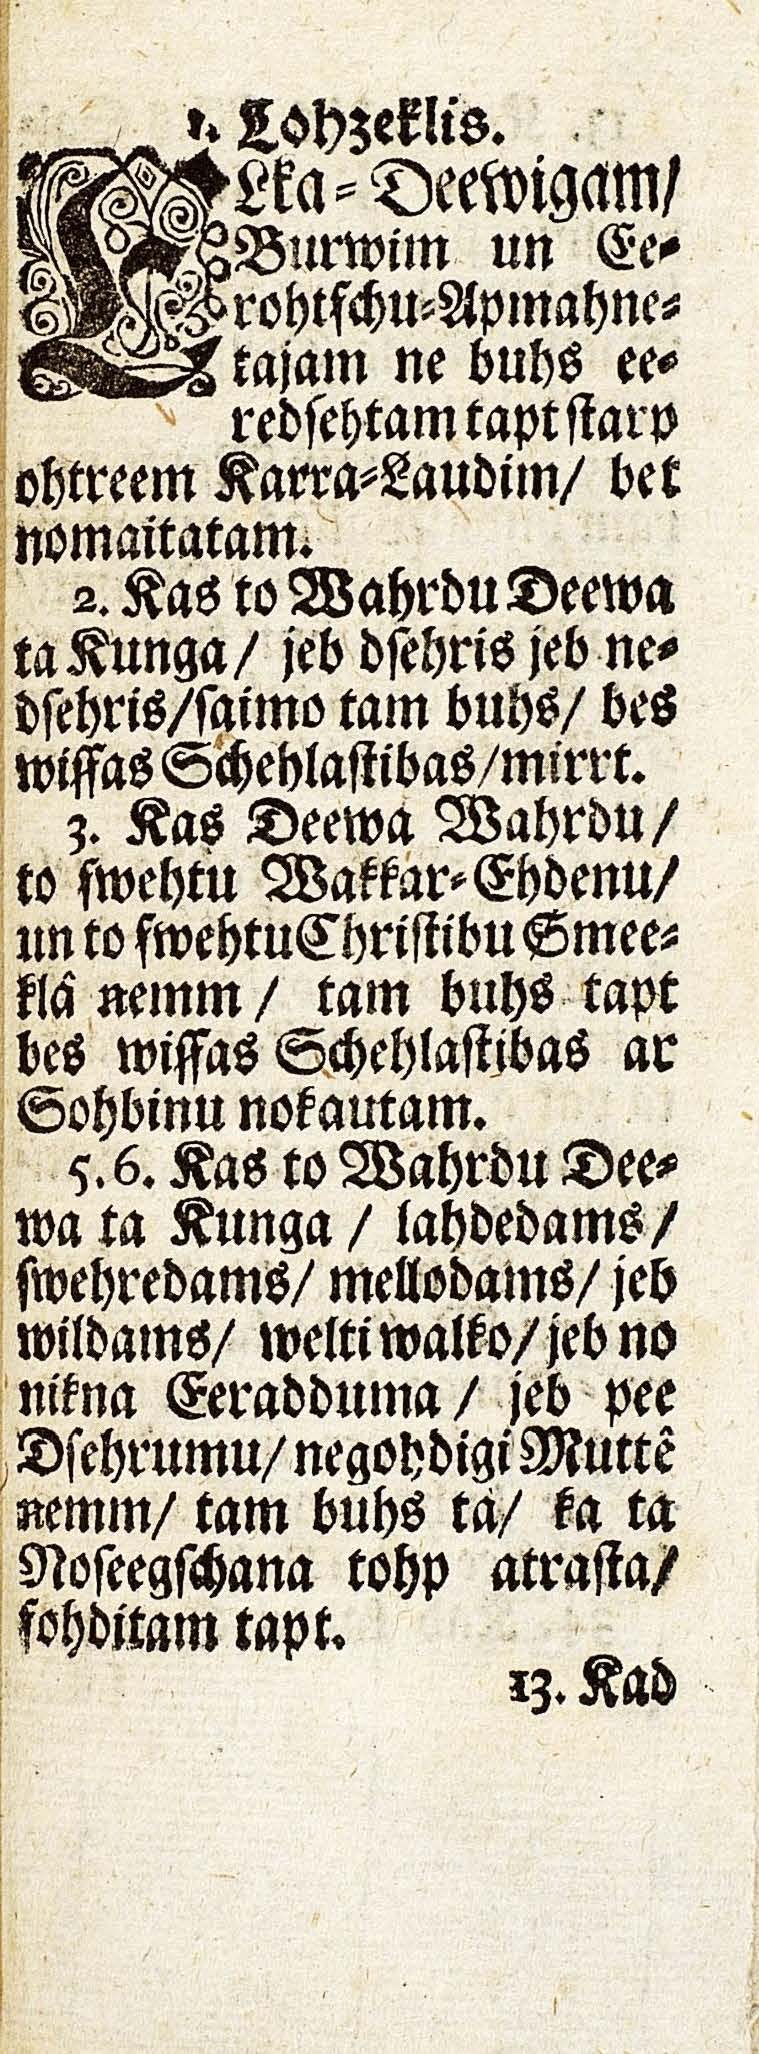 1. Lohzeklis.
ELka⸗Deewigam/
Burwim un Ee⸗
rohtſchu⸗Apmahne⸗
tajam ne buhs ee⸗
redſehtam tapt ſtarp
ohtreem Karra⸗Laudim/ bet
nomaitatam.
2. Kas to Wahrdu Deewa
ta Kunga/ jeb dſehris jeb ne⸗
dſehris/ſaimo tam buhs/ bes
wiſſas Schehlaſtibas/mirrt.
3. Kas Deewa Wahrdu/
to ſwehtu Wakkar⸗Ehdenu/
un to ſwehtu Chriſtibu Smee⸗
klâ nemm/ tam buhs tapt
bes wiſſas Schehlaſtibas ar
Sohbinu nokautam.
5.6. Kas to Wahrdu Dee⸗
wa ta Kunga/ lahdedams/
ſwehredams/ mellodams/ jeb
wildams/ welti walko/ jeb no
nikna Eeradduma/ jeb pee
Dſehrumu/ negohdigi Muttê
nemm/ tam buhs tà/ ka ta
Noſeegſchana tohp atraſta/
ſohditam tapt.
13. Kad